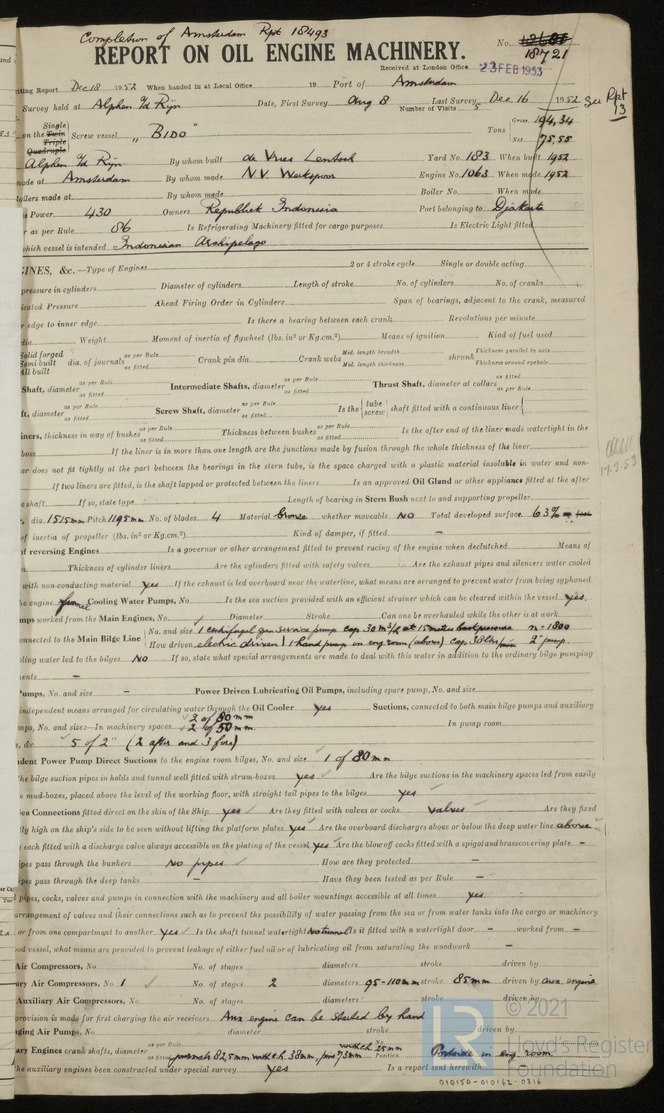 Completion of Amsterdam Rpt 18493
REPORT ON OIL ENGINE MACHINERY.
No. 18721
Received at London Office 23 FEB 1953
iting Report Dec 18 1952 When handed in at Local Office 19 Port of Amsterdam
Survey held at Alphen a/d Rijn Date, First Survey Aug 8 Last Survey Dec 16 1952
Number of Visits 5
See Rpt 13
on the Single Twin Triple Quadruple Screw vessel „ BIDO" Tons Gross 194,34 Net 75,55
Alphen a/d Rijn By whom built de Vries Lentsch Yard No. 183 When built 1952
made at Amsterdam By whom made N.V. Werkspoor Engine No. 1063 When made 1952
oilers made at By whom made Boiler No. When made
Power 430 Owners Republiek Indonesia Port belonging to Djakarta
r as per Rule 86 Is Refrigerating Machinery fitted for cargo purposes Is Electric Light fitted
which vessel is intended Indonesian Archipelago
GINES, &c.—Type of Engines 2 or 4 stroke cycle Single or double acting
pressure in cylinders Diameter of cylinders Length of stroke No. of cylinders No. of cranks
icated Pressure Ahead Firing Order in Cylinders Span of bearings, adjacent to the crank, measured
r edge to inner edge Is there a bearing between each crank Revolutions per minute
dia. Weight Moment of inertia of flywheel (lbs. in² or Kg.cm.²) Means of ignition Kind of fuel used
Solid forged Semi built All built dia. of journals as per Rule as fitted Crank pin dia. Crank webs Mid. length breadth Mid. length thickness shrunk Thickness parallel to axis Thickness around eyehole
Shaft, diameter as per Rule as fitted Intermediate Shafts, diameter as per Rule as fitted Thrust Shaft, diameter at collars as fitted as per Rule
ft, diameter as per Rule as fitted Screw Shaft, diameter as per Rule as fitted Is the { tube screw } shaft fitted with a continuous liner {
iners, thickness in way of bushes as per Rule as fitted Thickness between bushes as per Rule as fitted Is the after end of the liner made watertight in the
boss If the liner is in more than one length are the junctions made by fusion through the whole thickness of the liner
er does not fit tightly at the part between the bearings in the stern tube, is the space charged with a plastic material insoluble in water and non-
If two liners are fitted, is the shaft lapped or protected between the liners Is an approved Oil Gland or other appliance fitted at the after
e shaft If so, state type Length of bearing in Stern Bush next to and supporting propeller
, dia. 1515mm Pitch 1195mm No. of blades 4 Material bronze whether moveable NO Total developed surface 63%
of inertia of propeller (lbs. in² or Kg.cm.²) Kind of damper, if fitted –
of reversing Engines Is a governor or other arrangement fitted to prevent racing of the engine when declutched Means of
Thickness of cylinder liners Are the cylinders fitted with safety valves Are the exhaust pipes and silencers water cooled
with non-conducting material yes If the exhaust is led overboard near the waterline, what means are arranged to prevent water from being syphoned
he engine funnel Cooling Water Pumps, No. Is the sea suction provided with an efficient strainer which can be cleared within the vessel yes.
mps worked from the Main Engines, No. Diameter Stroke Can one be overhauled while the other is at work
onnected to the Main Bilge Line { No. and size 1 centrifugal gen service pump cap 30 m³/h at 15 meters backpressure n-1800
How driven electric driven / 1 hand pump in eng room (above) cap 38 ltr/min 2" pump
oling water led to the bilges NO If so, state what special arrangements are made to deal with this water in addition to the ordinary bilge pumping
ments –
Pumps, No. and size – Power Driven Lubricating Oil Pumps, including spare pump, No. and size
independent means arranged for circulating water through the Oil Cooler yes Suctions, connected to both main bilge pumps and auxiliary
mps, No. and size:—In machinery spaces 2 of 80 mm 2 of 50 mm In pump room
s, &c 5 of 2" (2 after and 3 fore)
dent Power Pump Direct Suctions to the engine room bilges, No. and size 1 of 80 mm
he bilge suction pipes in holds and tunnel well fitted with strum-boxes yes Are the bilge suctions in the machinery spaces led from easily
e mud-boxes, placed above the level of the working floor, with straight tail pipes to the bilges yes
ea Connections fitted direct on the skin of the Ship yes Are they fitted with valves or cocks valves Are they fixed
ly high on the ship's side to be seen without lifting the platform plates yes Are the overboard discharges above or below the deep water line above
each fitted with a discharge valve always accessible on the plating of the vessel yes Are the blow off cocks fitted with a spigot and brass covering plate –
ipes pass through the bunkers No pipes How are they protected –
ipes pass through the deep tanks – Have they been tested as per Rule –
l pipes, cocks, valves and pumps in connection with the machinery and all boiler mountings accessible at all times yes
arrangement of valves and their connections such as to prevent the possibility of water passing from the sea or from water tanks into the cargo or machinery
or from one compartment to another yes Is the shaft tunnel watertight No tunnel Is it fitted with a watertight door – worked from –
od vessel, what means are provided to prevent leakage of either fuel oil or of lubricating oil from saturating the woodwork –
Air Compressors, No. No. of stages diameters stroke driven by
ary Air Compressors, No. 1 No. of stages 2 diameters 95-110mm stroke 85mm driven by aux. engine
Auxiliary Air Compressors, No. No. of stages diameters stroke driven by
provision is made for first charging the air receivers Aux engine can be started by hand
nging Air Pumps, No. diameter stroke driven by
ary Engines crank shafts, diameter as per Rule as fitted journals 82,5mm Position Portside in eng. room
he auxiliary engines been constructed under special survey yes Is a report sent herewith
© 2021
LR Lloyd's Register Foundation
010150-010162-0316